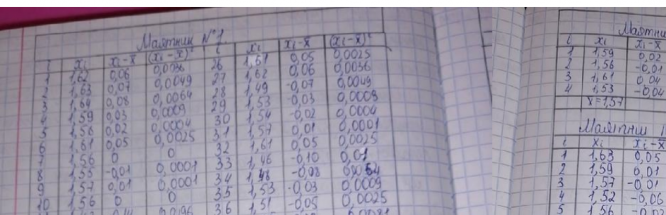 Маятник №1
i xᵢ xᵢ-x̄ (xᵢ-x̄)² i xᵢ xᵢ-x̄ (xᵢ-x̄)²
1 1,62 0,06 0,0036 26 1,61 0,05 0,0025
2 1,63 0,07 0,0049 27 1,62 0,06 0,0036
3 1,64 0,08 0,0064 28 1,49 -0,07 0,0049
4 1,59 0,03 0,0009 29 1,53 -0,03 0,0009
5 1,58 0,02 0,0004 30 1,54 -0,02 0,0004
6 1,61 0,05 0,0025 31 1,57 0,01 0,0001
7 1,56 0 0 32 1,61 0,05 0,0025
8 1,55 -0,01 0,0001 33 1,46 -0,10 0,01
9 1,57 0,01 0,0001 34 1,48 -0,08
10 1,56 0 0 35 1,53 -0,03 0,0009
36 1,51 -0,05 0,0025
i xᵢ xᵢ-x̄
1 1,59 0,02
2 1,56 -0,01
3 1,61 0,04
4 1,53 -0,04
x̄=1,57
Маятник
i xᵢ xᵢ-x̄
1 1,63 0,05
2 1,59 0,01
3 1,57 -0,01
4 1,52 -0,06
5 1,56